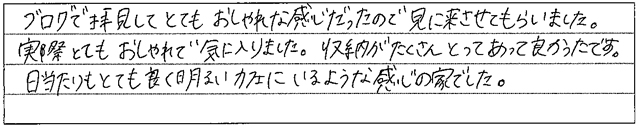 ブログで拝見してとてもおしゃれな感じだったので見に来させてもらいました。
実際とてもおしゃれで気に入りました。収納がたくさんとってあって良かったです。
日当たりもとても良く明るいカフェにいるような感じの家でした。